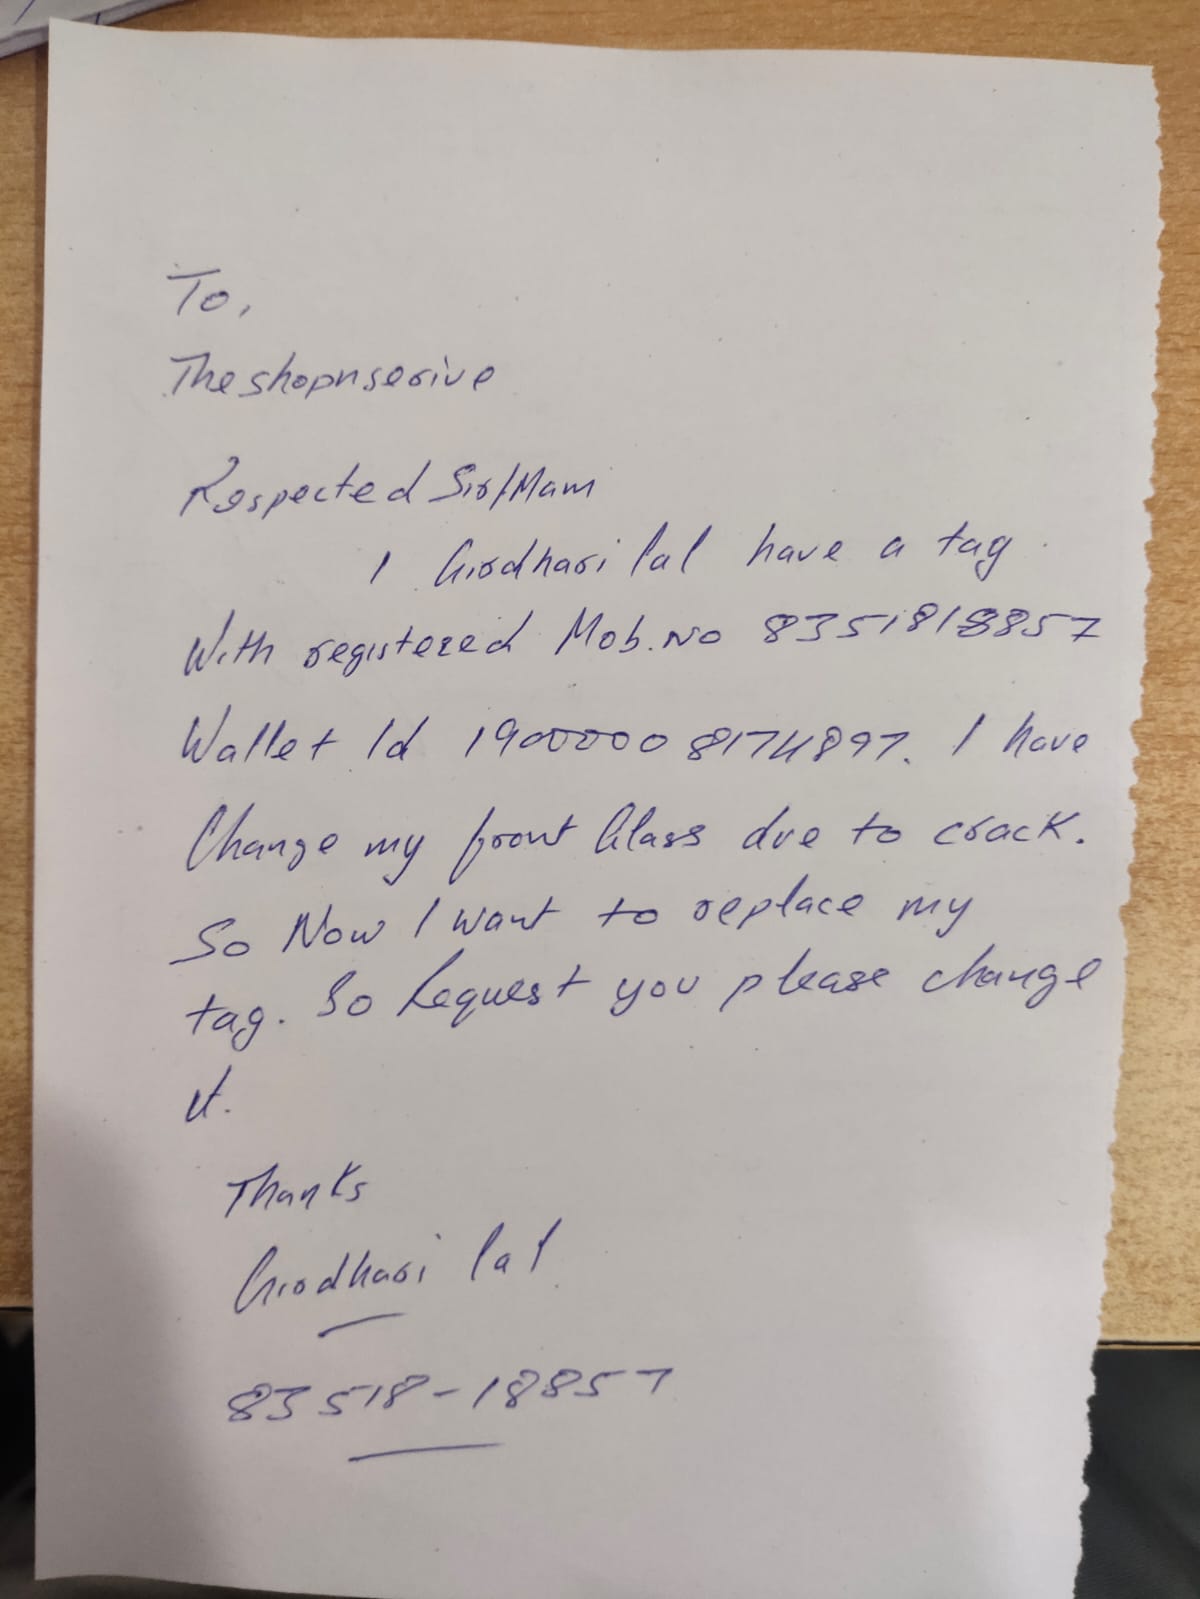 To,
Theshopnserive
Respected Sir/Mam
I Girdhari lal have a tag
With registered Mob. No 8351818857
Wallet Id 19000008174897. I have
Change my front Glass due to crack.
So Now I want to replace my
tag. So Request you please change
it.
Thanks
Girdhari lal
83518-18857